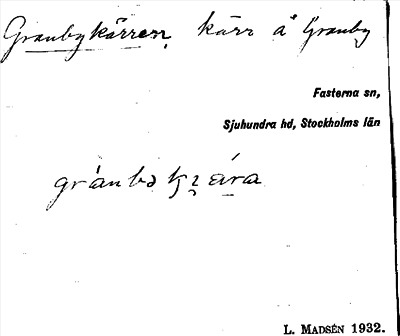 Granbykärren, kärr å Granby
Fasterna sn,
Sjuhundra hd, Stockholms län
L. MADSÉN 1932.